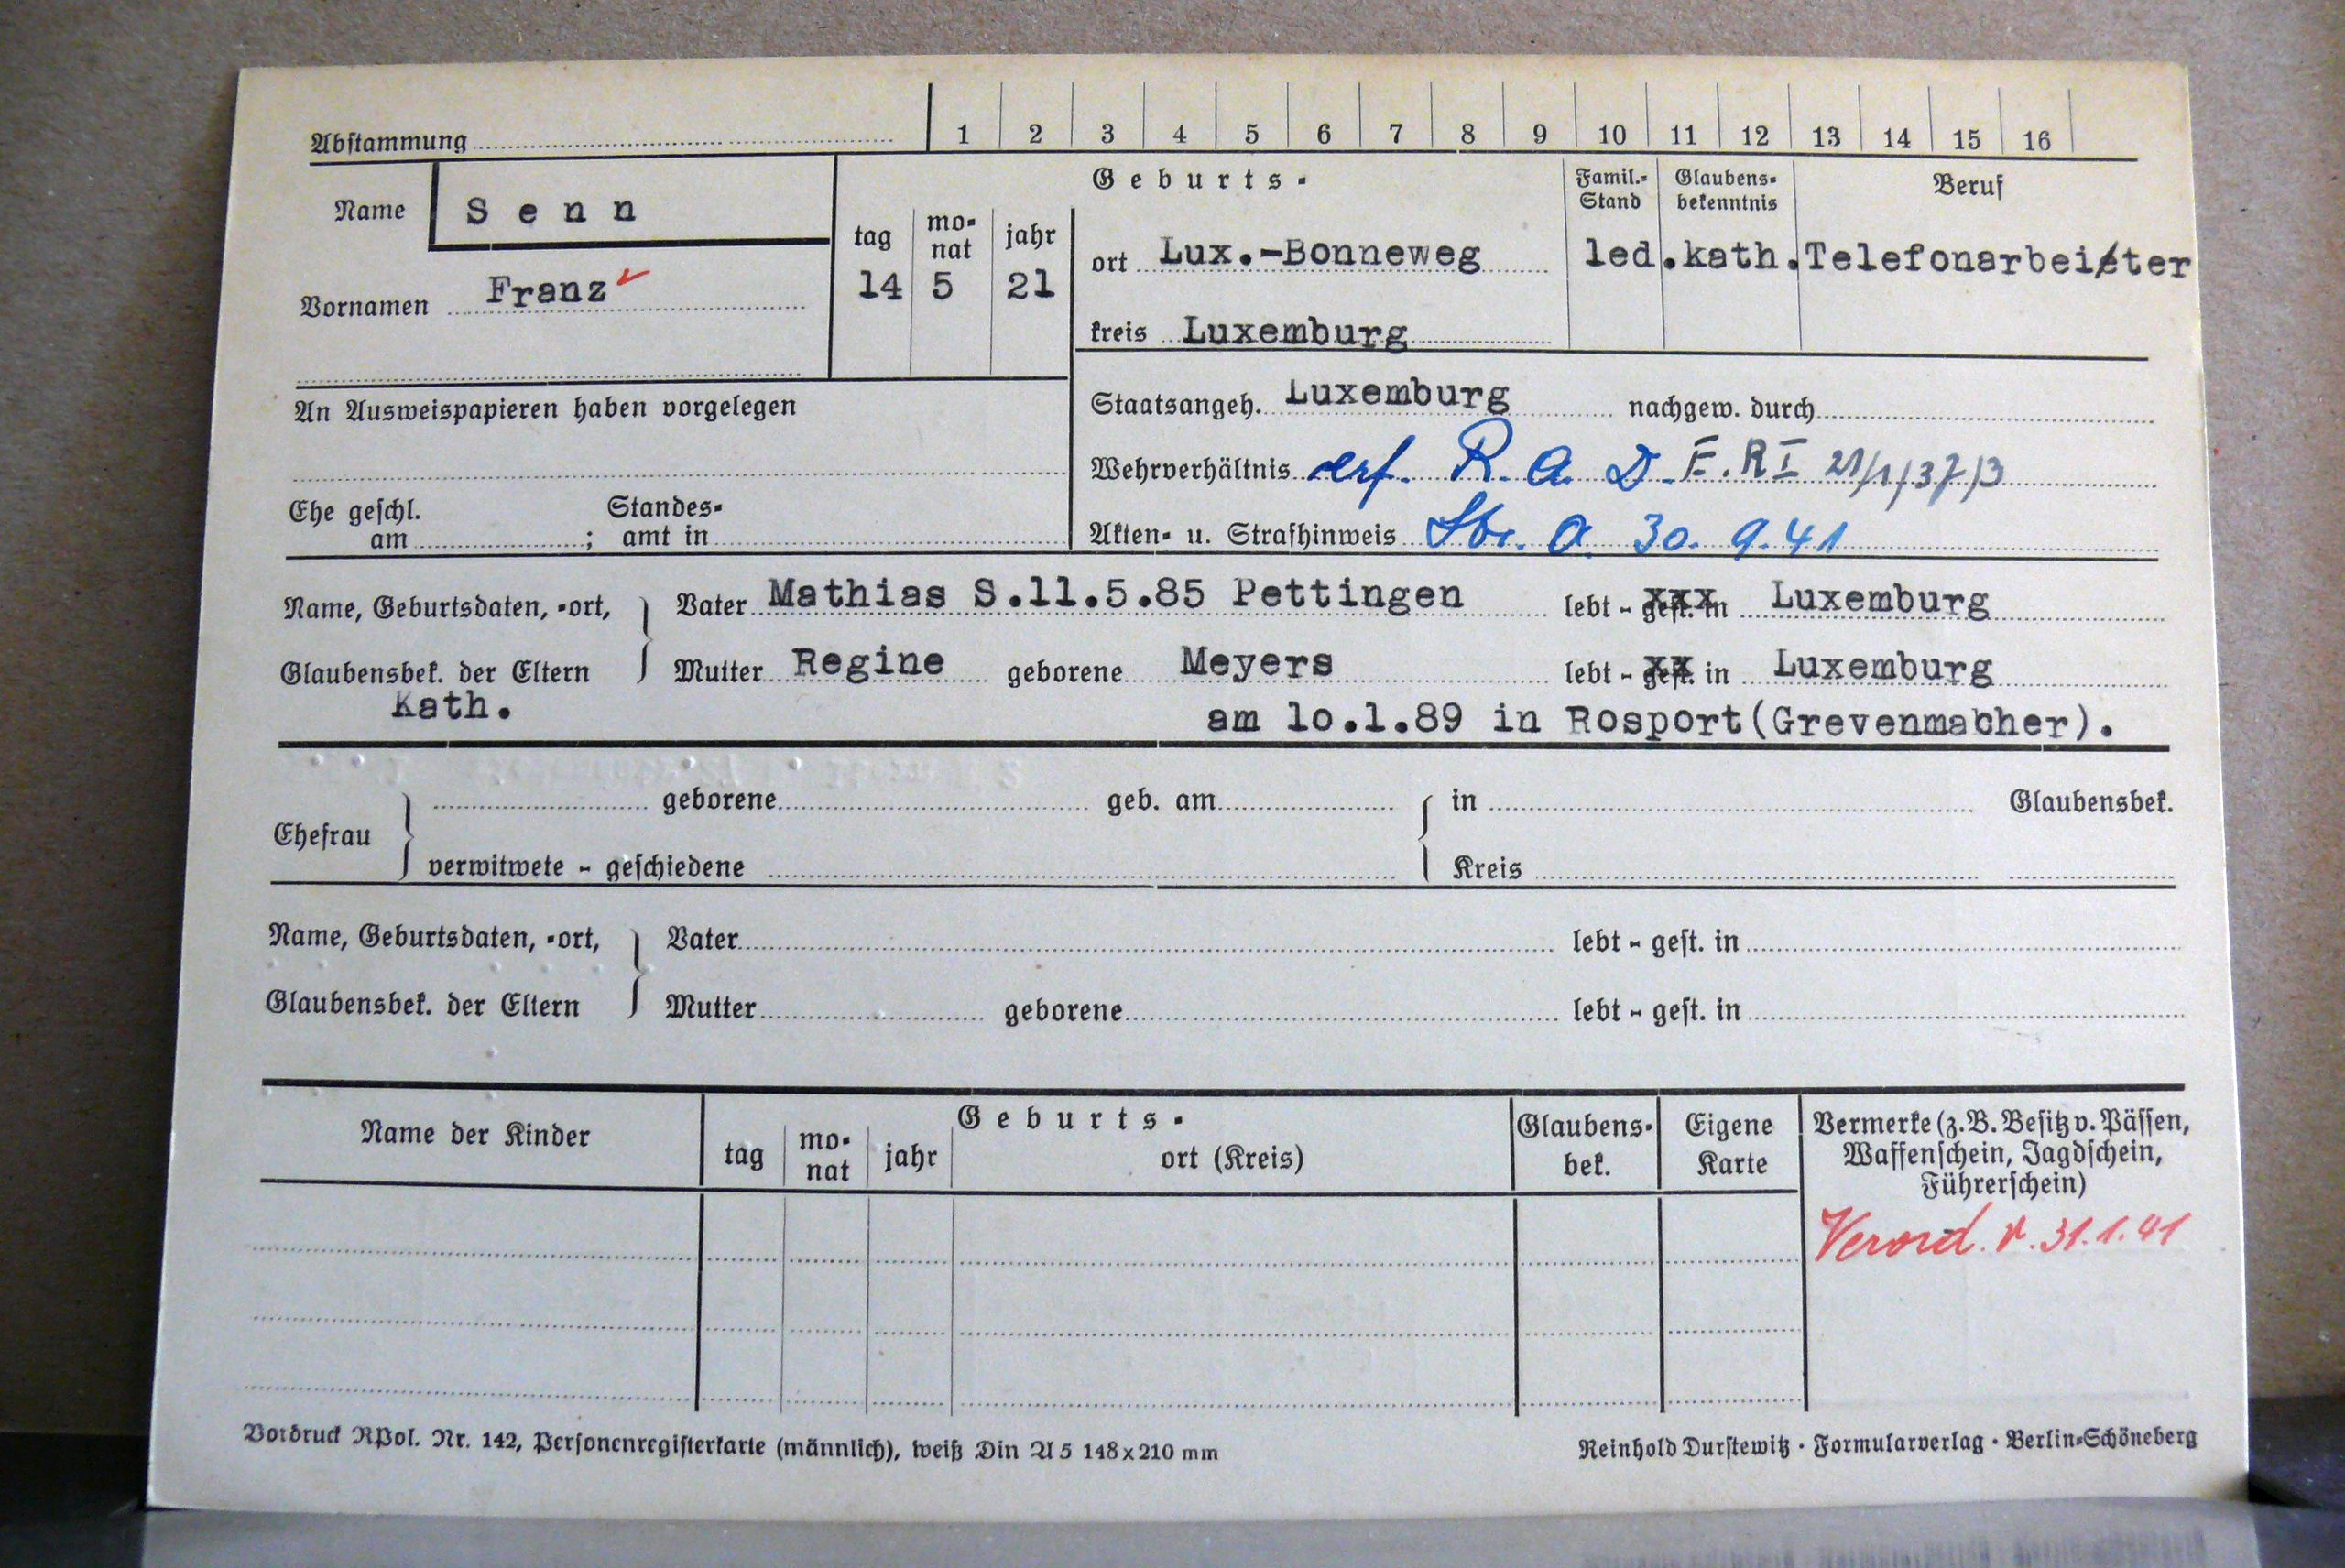 Abstammung 1 2 3 4 5 6 7 8 9 10 11 12 13 14 15 16
Name Senn
Vornamen Franz
Geburts-
tag monat jahr
14 5 21
ort Lux.-Bonneweg
kreis Luxemburg
Famil.-Stand
led.
Glaubens-bekenntnis
kath.
Beruf
Telefonarbeiter
An Ausweispapieren haben vorgelegen
Staatsangeh. Luxemburg nachgew. durch
Wehrverhältnis erf. R. A. D. E. R I 21/1/37/3
Ehe geschl. am ; Standes-amt in
Akten- u. Strafhinweis 30. 9. 41
Name, Geburtsdaten, -ort, Vater Mathias S.11.5.85 Pettingen lebt - gest. in Luxemburg
Glaubensbek. der Eltern Mutter Regine geborene Meyers lebt - gest. in Luxemburg
Kath. am 10.1.89 in Rosport(Grevenmacher).
Ehefrau geborene geb. am in Glaubensbek.
verwitwete - geschiedene Kreis
Name, Geburtsdaten, -ort, Vater lebt - gest. in
Glaubensbek. der Eltern Mutter geborene lebt - gest. in
Name der Kinder
Geburts-
tag monat jahr ort (Kreis)
Glaubens-bek.
Eigene Karte
Vermerke (z.B. Besitz v. Pässen,
Waffenschein, Jagdschein,
Führerschein)
Verord. v. 31.1.41
Vordruck RPol. Nr. 142, Personenregisterkarte (männlich), weiß Din A 5 148x210 mm
Reinhold Durstewitz · Formularverlag · Berlin-Schöneberg